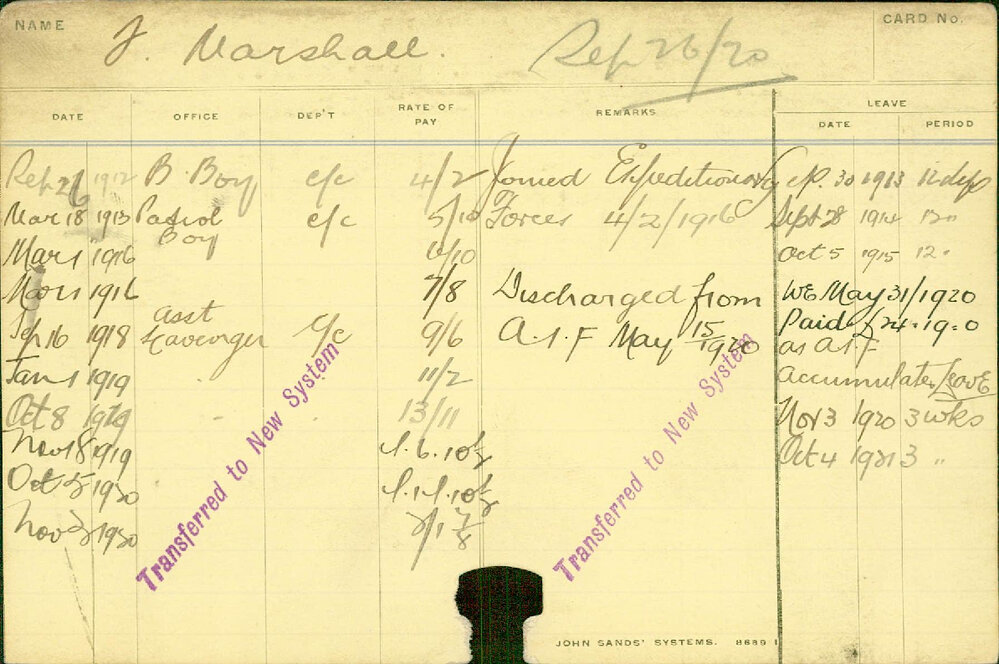 NAME J. Marshall. Sep 26/20 CARD No.
DATE OFFICE DEP'T RATE OF PAY REMARKS LEAVE
DATE PERIOD
Sep. 26 1912 B. Boy c/c 4/2 Joined Expeditionary Sep. 30 1913 12 dys
Mar 18 1913 Patrol Boy c/c 5/10 Forces 4/2/1916 Sept 28 1914 12 "
Mar 1 1916 6/10 Oct 5 1915 12 "
Mar 1 1916 7/8 Discharged from WE May 31/1920
Sep 16 1918 Asst Scavenger c/c 9/6 A.I.F May 15/1920 Paid 24.19.0
as A.I.F
Jan 1 1919 11/2 Accumulated Leave
Oct 8 1919 13/11 Nov 3 1920 3 wks
Nov 18 1919 Oct 4 1921 3 "
Oct 5 1920
Nov 1920
Transferred to New System
Transferred to New System
JOHN SANDS' SYSTEMS. 8689